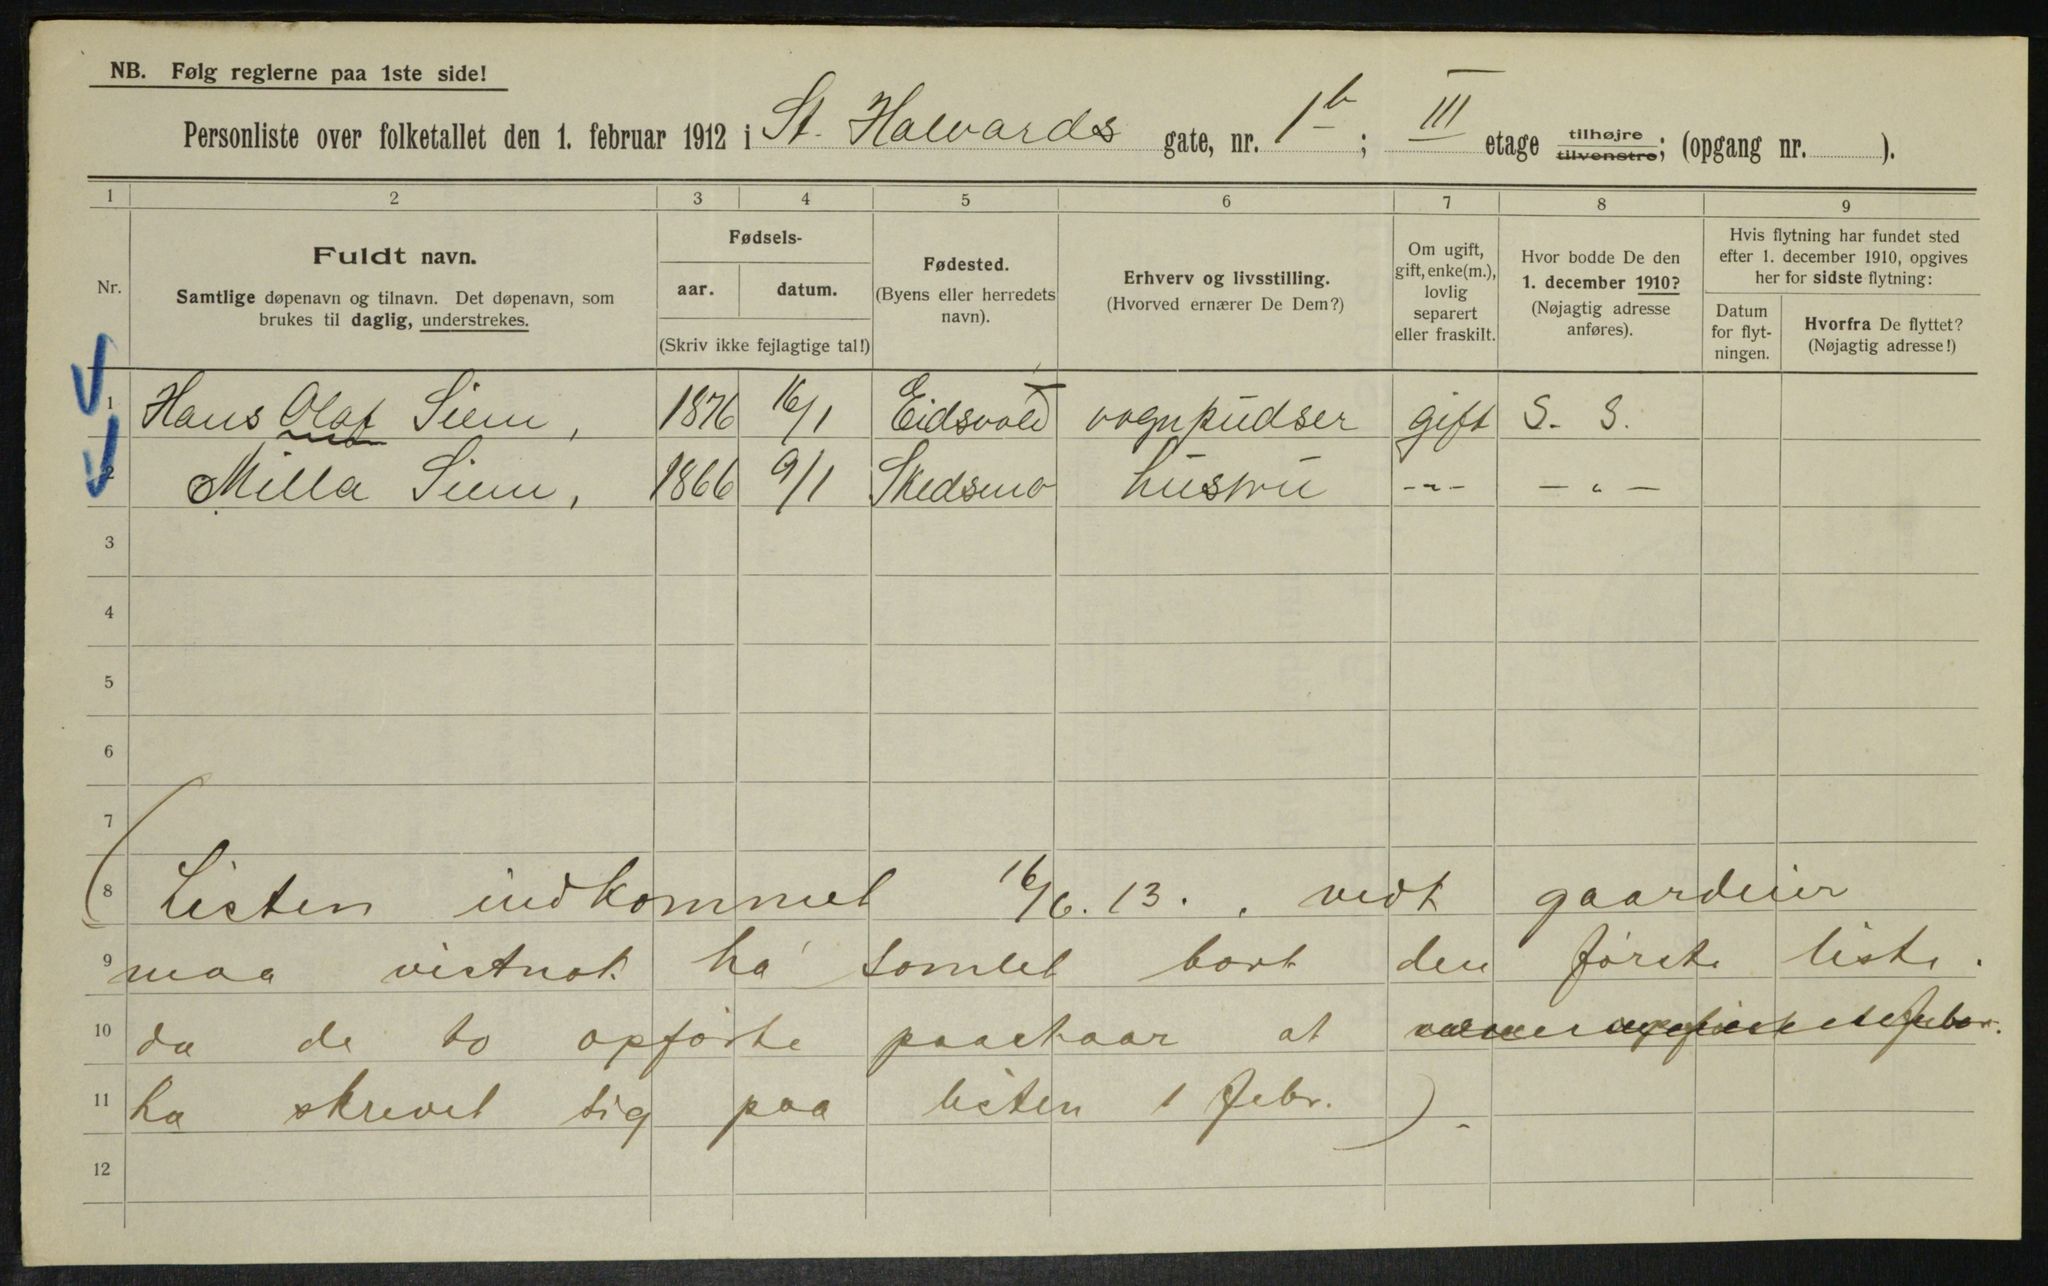 NB. Følg reglerne paa 1ste side!
Personliste over folketallet den 1. februar 1912 i St. Halvards gate, nr. 1b; III etage tilhøjre tilvenstre; (opgang nr. ).
1 2 3 4 5 6 7 8 9
Nr.
Fuldt navn.
Samtlige døpenavn og tilnavn. Det døpenavn, som
brukes til daglig, understrekes.
Fødsels-
aar. datum.
(Skriv ikke fejlagtige tal!)
Fødested.
(Byens eller herredets
navn).
Erhverv og livsstilling.
(Hvorved ernærer De Dem?)
Om ugift,
gift, enke(m.),
lovlig
separert
eller fraskilt.
Hvor bodde De den
1. december 1910?
(Nøjagtig adresse
anføres).
Hvis flytning har fundet sted
efter 1. december 1910, opgives
her for sidste flytning:
Datum
for flyt-
ningen.
Hvorfra De flyttet?
(Nøjagtig adresse!)
1 Hans Olaf Siem, 1876 16/1 Eidsvold vognpudser gift S. S.
2 Milla Siem, 1866 9/1 Skedsmo hustru -"- - " -
3
4
5
6
7
8 (Listen indkommet 16/6. 13. . vedk gaardeier
9 maa vistnok ha somlet bort den første liste.
10 da de to opførte paastaar at febr.
11 ha skrevet sig paa listen 1 febr. ).
12